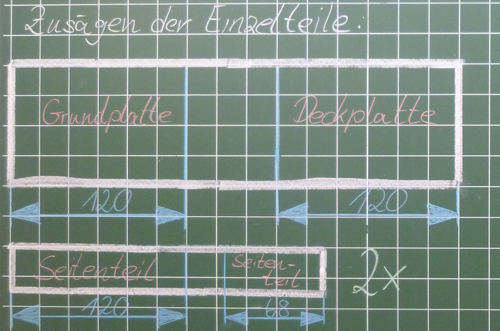 Zusägen der Einzelteile:
Grundplatte Deckplatte
120 120
Seitenteil Seiten-
teil 2x
120 68